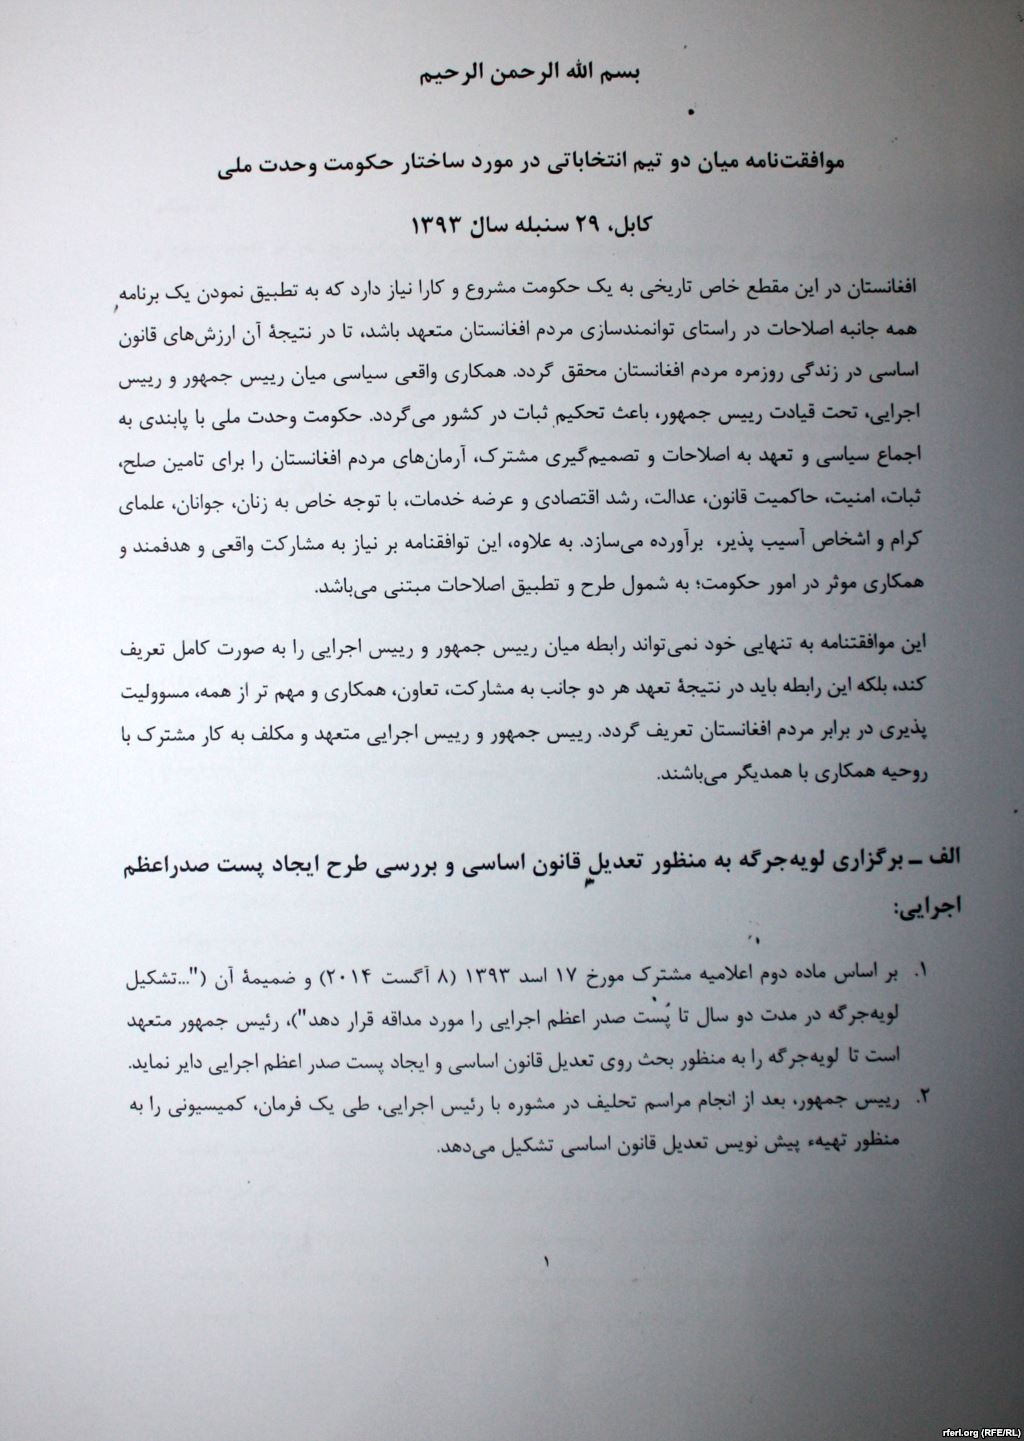 بسم الله الرحمن الرحیم
موافقت‌نامه میان دو تیم انتخاباتی در مورد ساختار حکومت وحدت ملی
کابل، ۲۹ سنبله سال ۱۳۹۳
افغانستان در این مقطع خاص تاریخی به یک حکومت مشروع و کارا نیاز دارد که به تطبیق نمودن یک برنامه
همه جانبه اصلاحات در راستای توانمندسازی مردم افغانستان متعهد باشد، تا در نتیجۀ آن ارزش‌های قانون
اساسی در زندگی روزمره مردم افغانستان محقق گردد. همکاری واقعی سیاسی میان رییس جمهور و رییس
اجرایی، تحت قیادت رییس جمهور، باعث تحکیم ثبات در کشور می‌گردد. حکومت وحدت ملی با پابندی به
اجماع سیاسی و تعهد به اصلاحات و تصمیم‌گیری مشترک، آرمان‌های مردم افغانستان را برای تامین صلح،
ثبات، امنیت، حاکمیت قانون، عدالت، رشد اقتصادی و عرضه خدمات، با توجه خاص به زنان، جوانان، علمای
کرام و اشخاص آسیب پذیر، برآورده می‌سازد. به علاوه، این توافقنامه بر نیاز به مشارکت واقعی و هدفمند و
همکاری موثر در امور حکومت؛ به شمول طرح و تطبیق اصلاحات مبتنی می‌باشد.
این موافقتنامه به تنهایی خود نمی‌تواند رابطه میان رییس جمهور و رییس اجرایی را به صورت کامل تعریف
کند، بلکه این رابطه باید در نتیجۀ تعهد هر دو جانب به مشارکت، تعاون، همکاری و مهم تر از همه، مسوولیت
پذیری در برابر مردم افغانستان تعریف گردد. رییس جمهور و رییس اجرایی متعهد و مکلف به کار مشترک با
روحیه همکاری با همدیگر می‌باشند.
الف – برگزاری لویه‌جرگه به منظور تعدیل قانون اساسی و بررسی طرح ایجاد پست صدراعظم
اجرایی:
۱. بر اساس ماده دوم اعلامیه مشترک مورخ ۱۷ اسد ۱۳۹۳ (۸ آگست ۲۰۱۴) و ضمیمۀ آن ("...تشکیل
لویه‌جرگه در مدت دو سال تا پُست صدر اعظم اجرایی را مورد مداقه قرار دهد")، رئیس جمهور متعهد
است تا لویه‌جرگه را به منظور بحث روی تعدیل قانون اساسی و ایجاد پست صدر اعظم اجرایی دایر نماید.
۲. رییس جمهور، بعد از انجام مراسم تحلیف در مشوره با رئیس اجرایی، طی یک فرمان، کمیسیونی را به
منظور تهیهء پیش نویس تعدیل قانون اساسی تشکیل می‌دهد.
۱
rferl.org (RFE/RL)